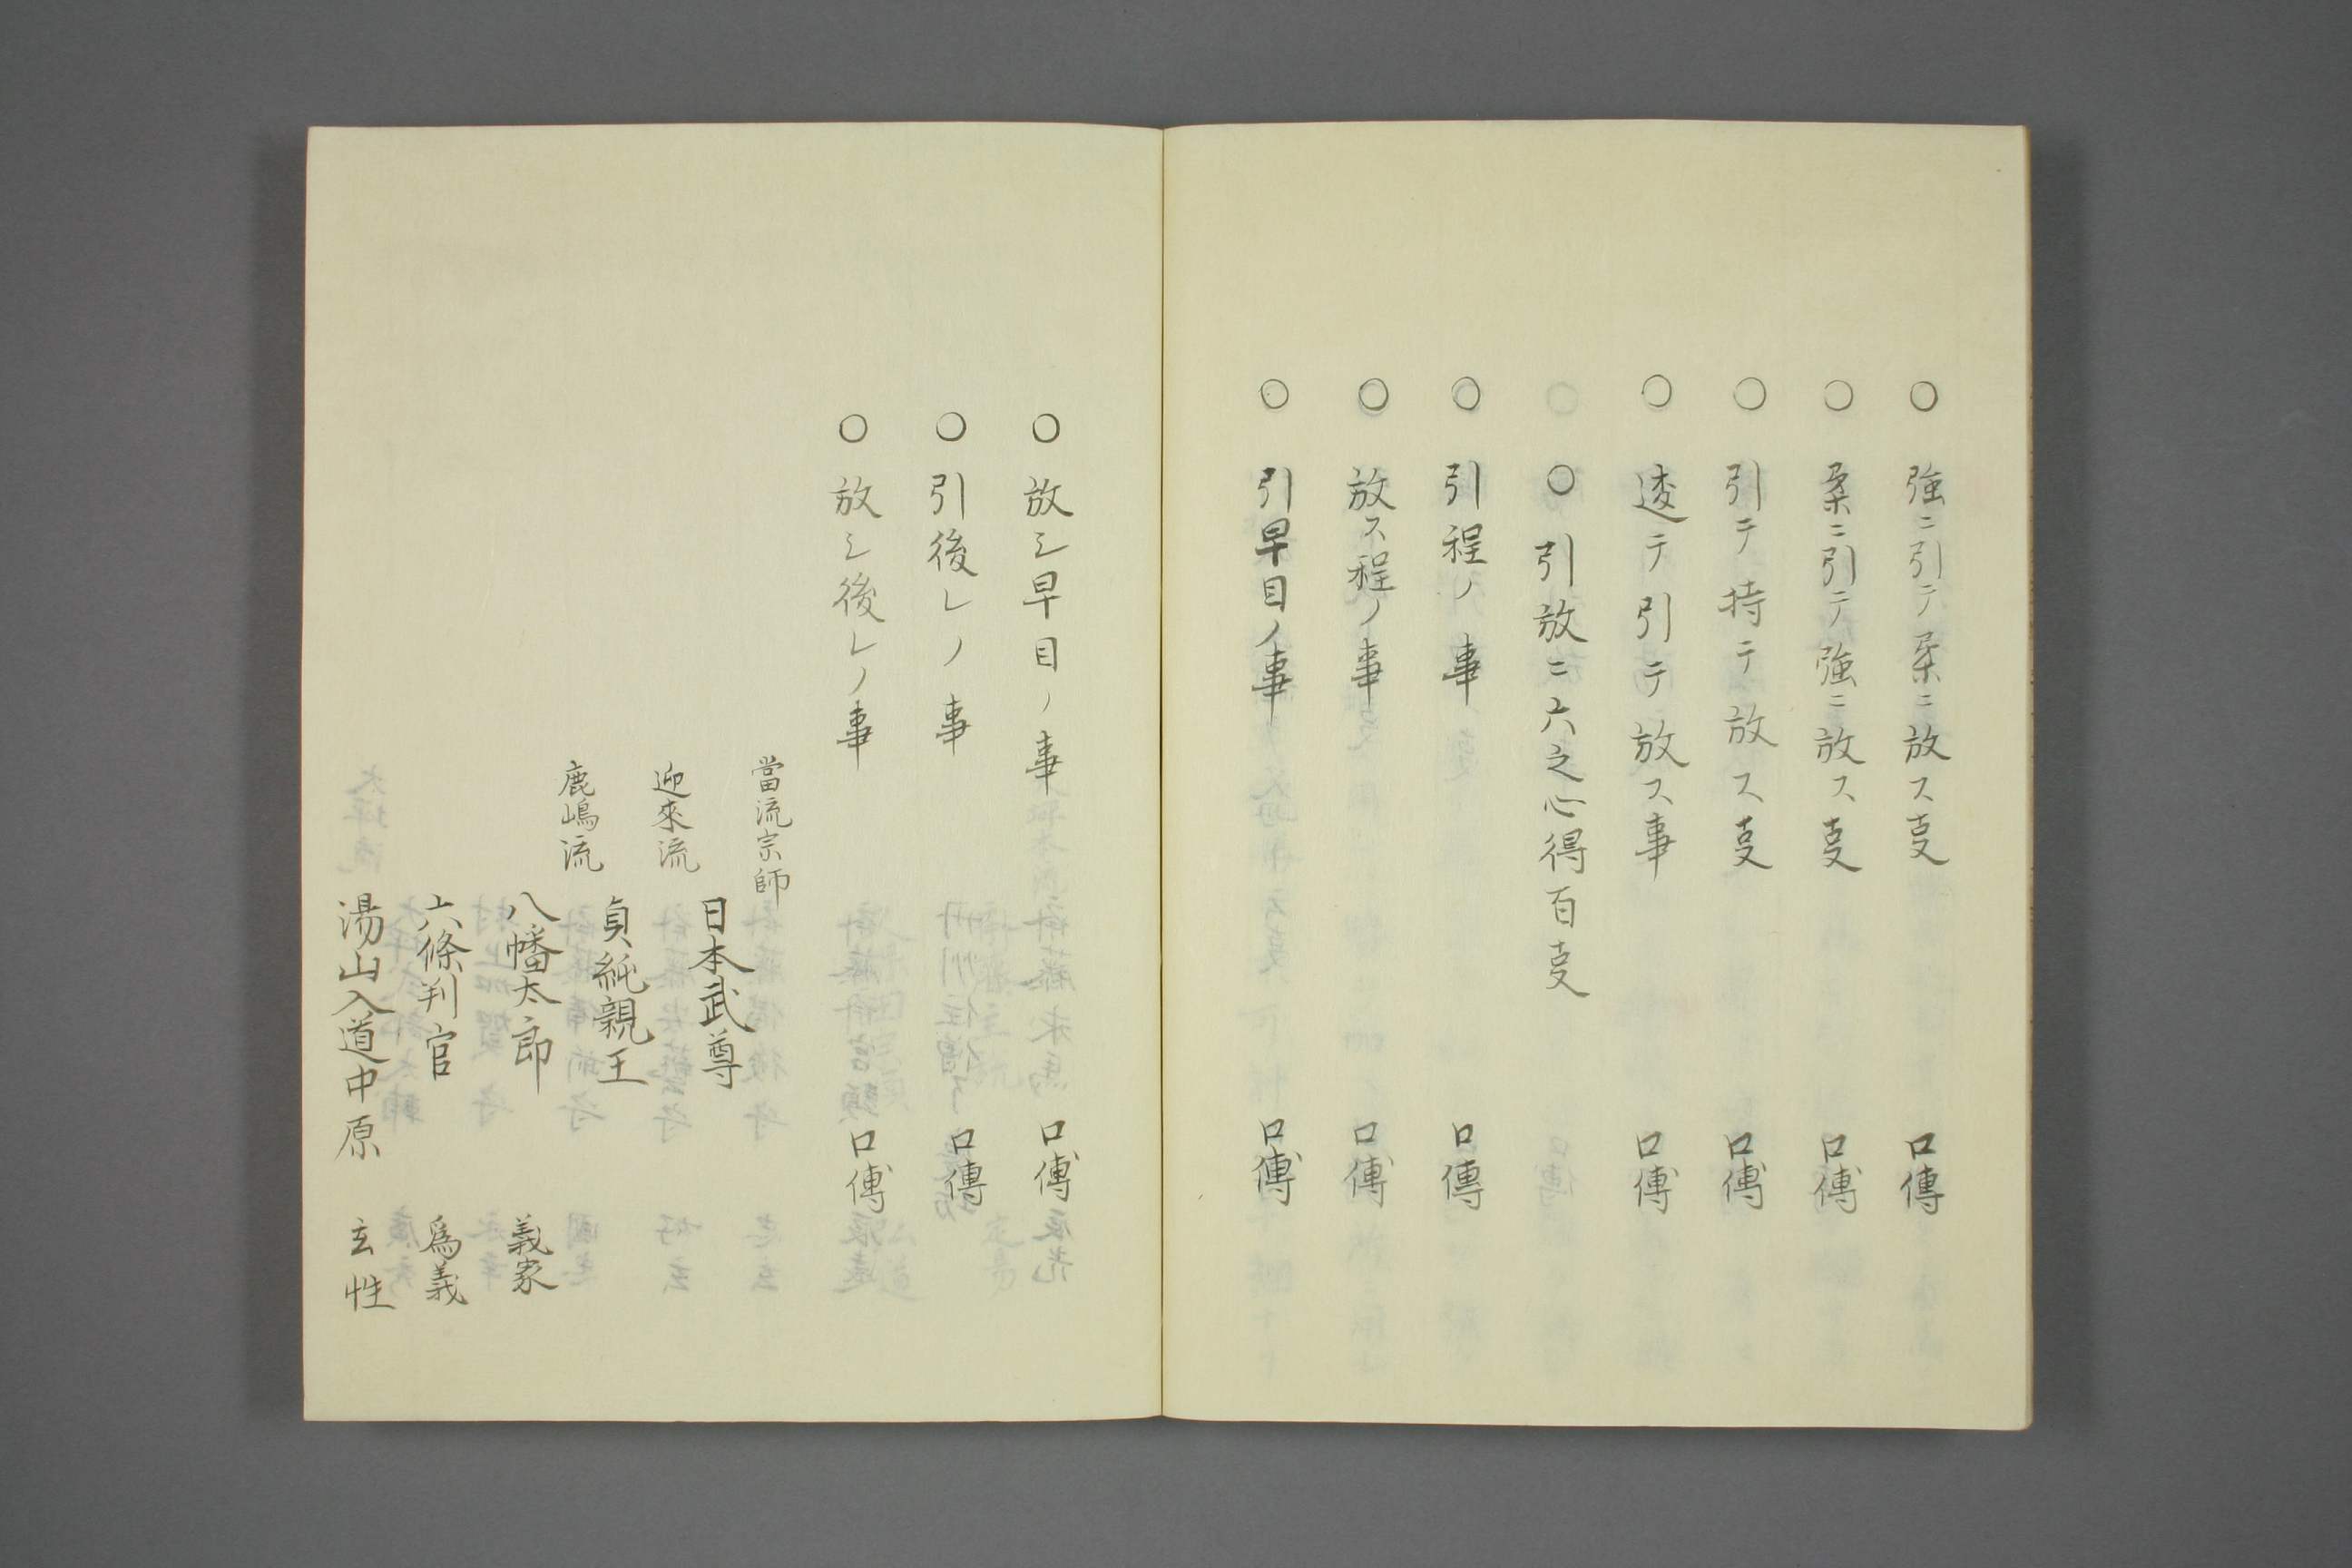 ○ 強ニ引テ柔ニ放ス叓 口傳
○ 柔ニ引テ強ニ放ス叓 口傳
○ 引テ持テ放ス叓 口傳
○ 逺テ引テ放ス事 口傳
○ 引放ニ六之心得百叓
○ 引程ノ事 口傳
○ 放ス程ノ事 口傳
○ 引早目ノ事 口傳
○ 放シ早目ノ事 口傳
○ 引後レノ事 口傳
○ 放シ後レノ事 口傳
當流宗師
日本武尊
迎來流
貞純親王
鹿嶋流
八幡太郎 義家
六條判官 爲義
湯山入道中原 玄性